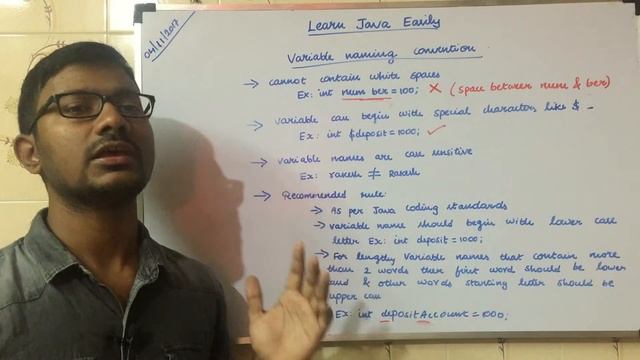 04/11/2017
Learn Java Easily
Variable naming convention
→ cannot contain white spaces
Ex: int num ber = 100; ✗ (space between num & ber)
→ variable can begin with special characters like $ _
Ex: int $deposit = 1000; ✓
→ variable names are case sensitive
Ex: rakesh ≠ Rakesh
→ Recommended rule:
→ As per Java coding standards
→ variable name should begin with lower case
letter Ex: int deposit = 1000;
→ For lengthy variable names that contain more
than 2 words then first word should be lower
and & other words starting letter should be
upper case
Ex: int depositAccount = 1000;